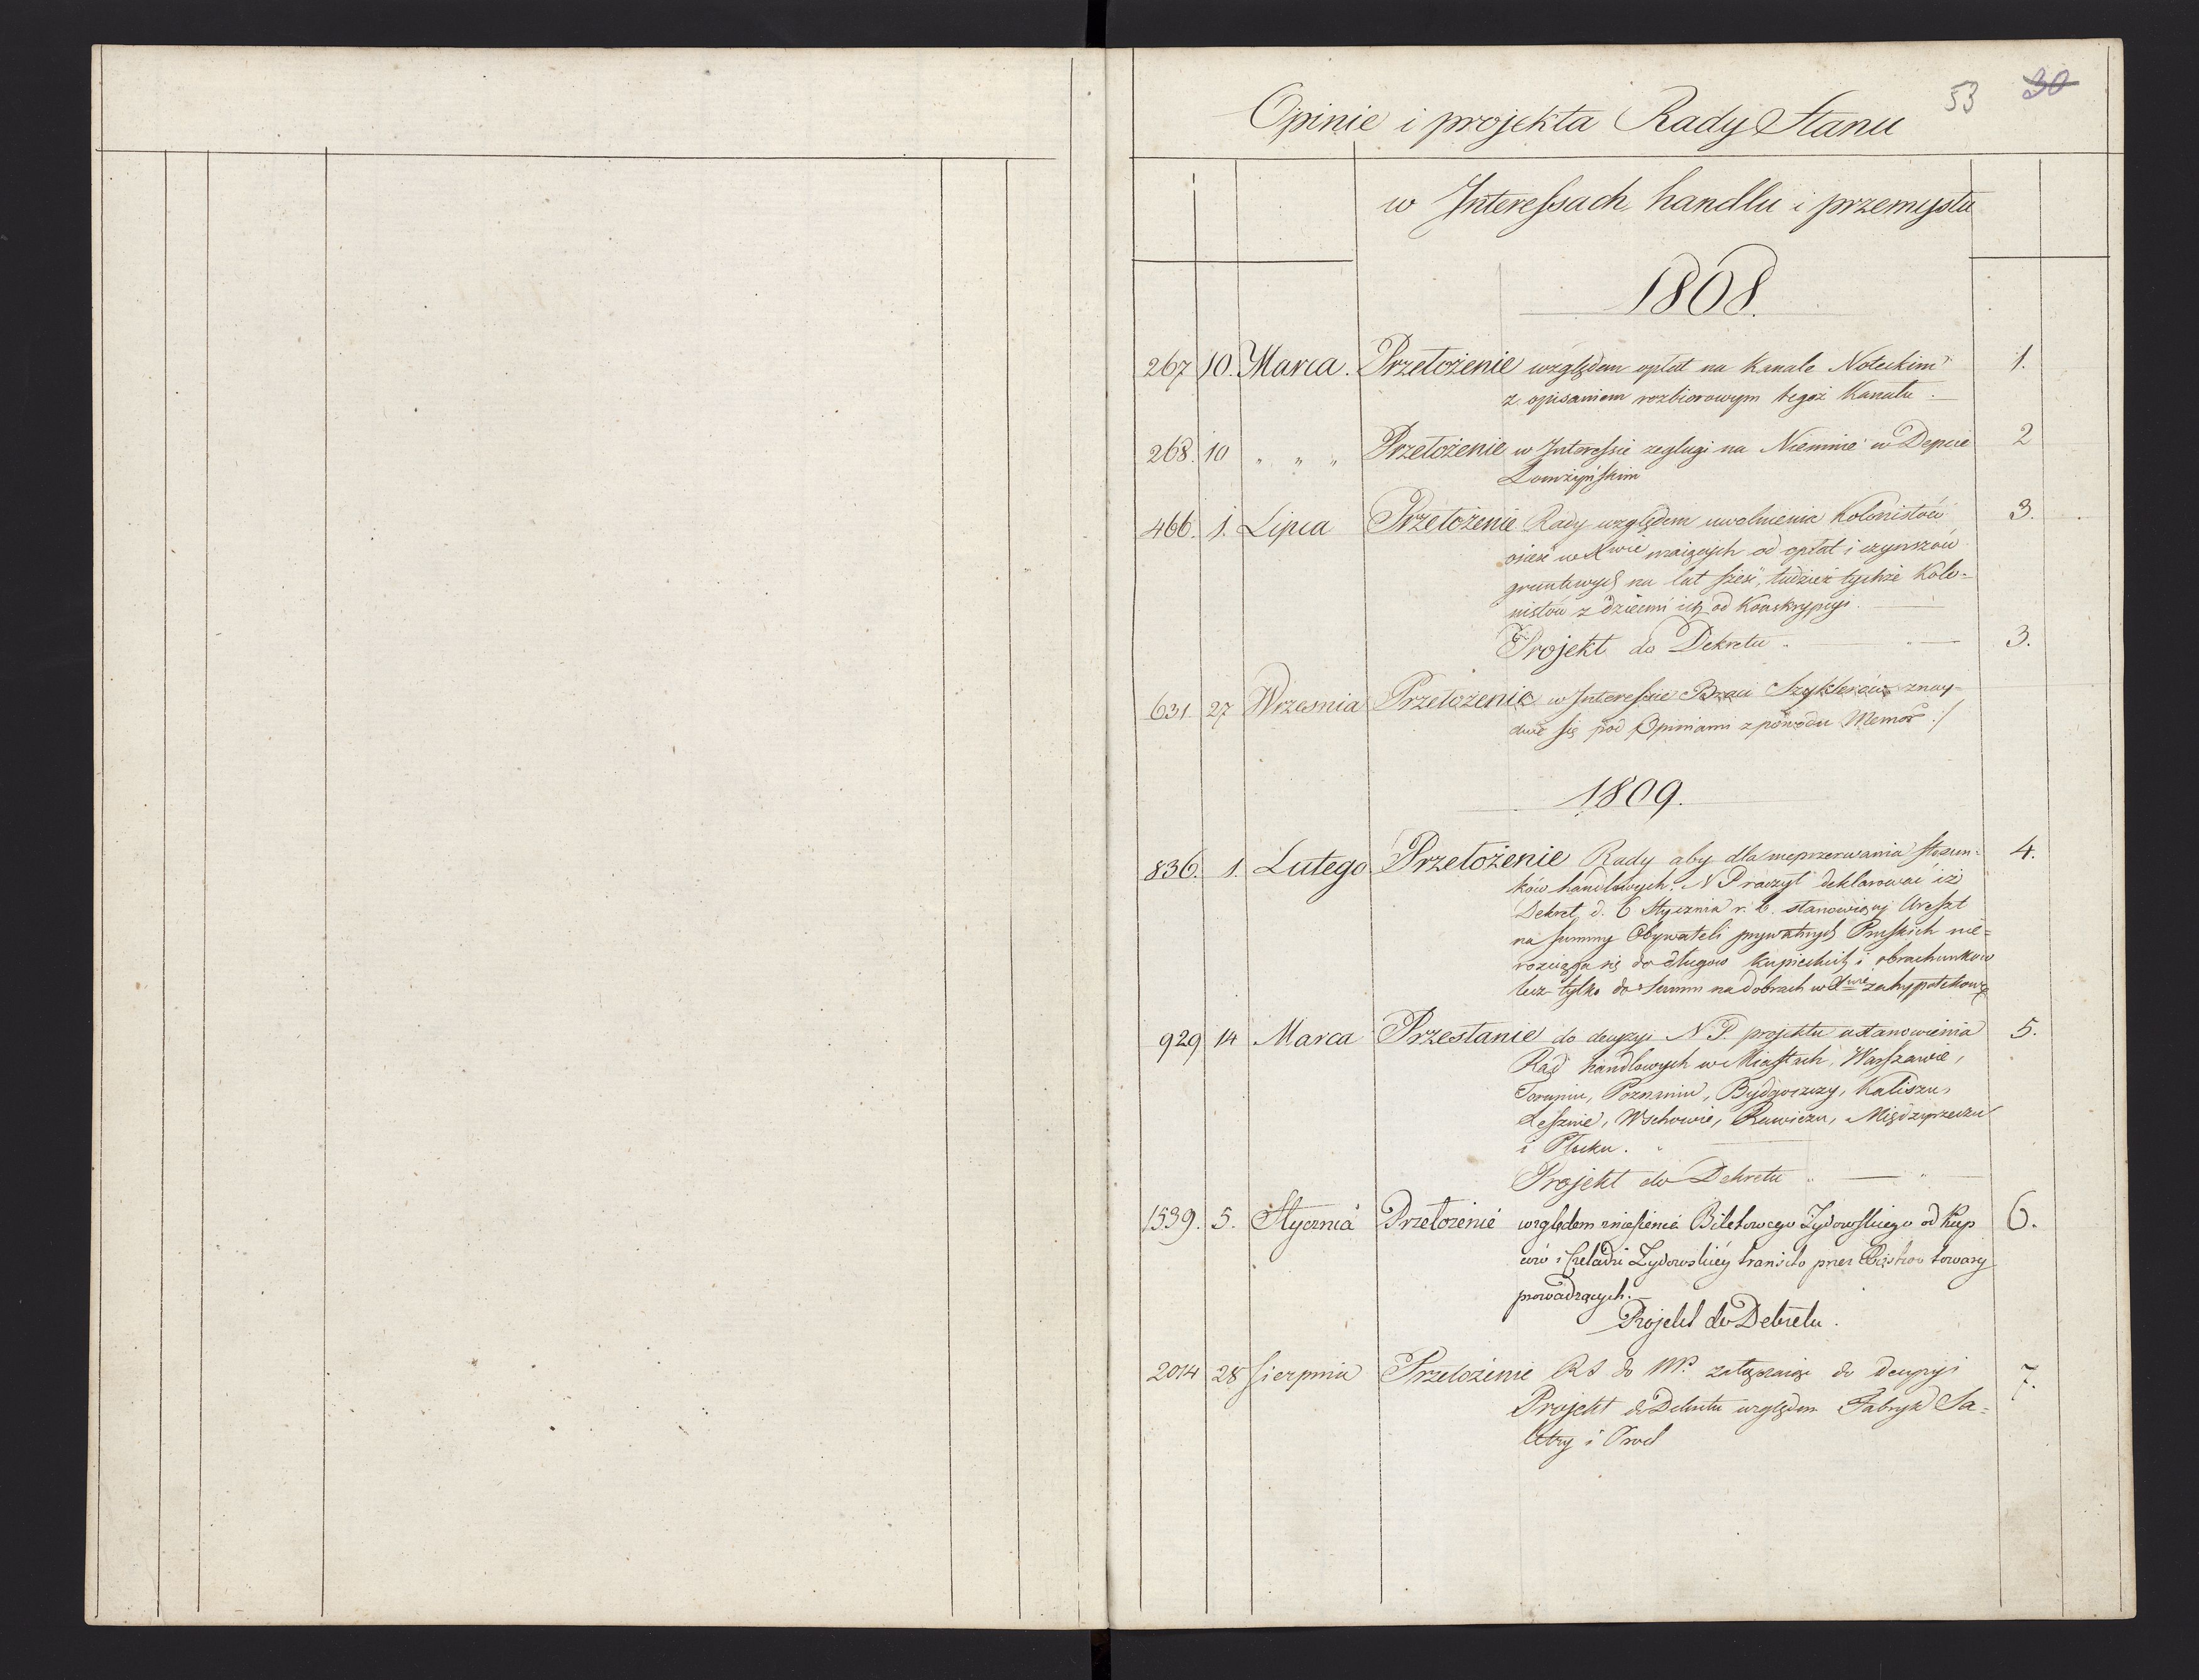 53 30
Opinie i projekta Rady Stanu
w Interessach handlu i przemysłu
1808.
267 10. Marca. Przełożenie względem opłat na Kanale Noteckim 1.
z opisaniem rozbiorowym tegoż Kanału.
268. 10 " " " Przełożenie w Interessie żeglugi na Niemnie w Depcie 2
Łomżyńskim
466. 1. Lipca Przełożenie Rady względem uwolnienia Kolonistów 3.
osieść w Xwie maiących od opłat i czynszów
gruntowych na lat sześć, tudzież tychże Kolo=
nistów z dziećmi ich od Konskrypcyi.
Projekt do Dekretu. 3.
631 27 Wrzesnia Przełożenie w Interessie Braci Szyklerów znay-
duie się pod Opiniami z powodu Memor :/
1809.
836. 1. Lutego Przełożenie Rady aby dla nieprzerwania stosun= 4.
ków handlowych. N P raczył deklarować iż
Dekret d. 6 Stycznia r. b. stanowiący Areszt
na summy Obywateli prywatnych Pruskich nie=
rozciąga się do długów kupieckich i obrachunków
lecz tylko do Summ na dobrach w Xwie zahypotekow:
929 14 Marca Przesłanie do decyzyi N. P. projektu ustanowienia 5.
Rad handlowych w Miastach, Warszawie,
Toruniu, Poznaniu, Bydgoszczy, Kaliszu,
Lesznie, Wschowie, Rawiczu, Międzyrzeczu
i Płocku.
Projekt do Dekretu "
1539. 5. Stycznia Przełożenie względem zniesienia Biletowego Żydowskiego od Kup 6.
ców i Czeladzi Żydowskiéy transito przez Xięstwo towary
prowadzących.
Projekt do Dekretu.
2014 28 Sierpnia Przełożenie RS do NP. załączaiąc do decyzyi 7.
Projekt do Dekretu względem Fabryk Sa=
letry i Proch